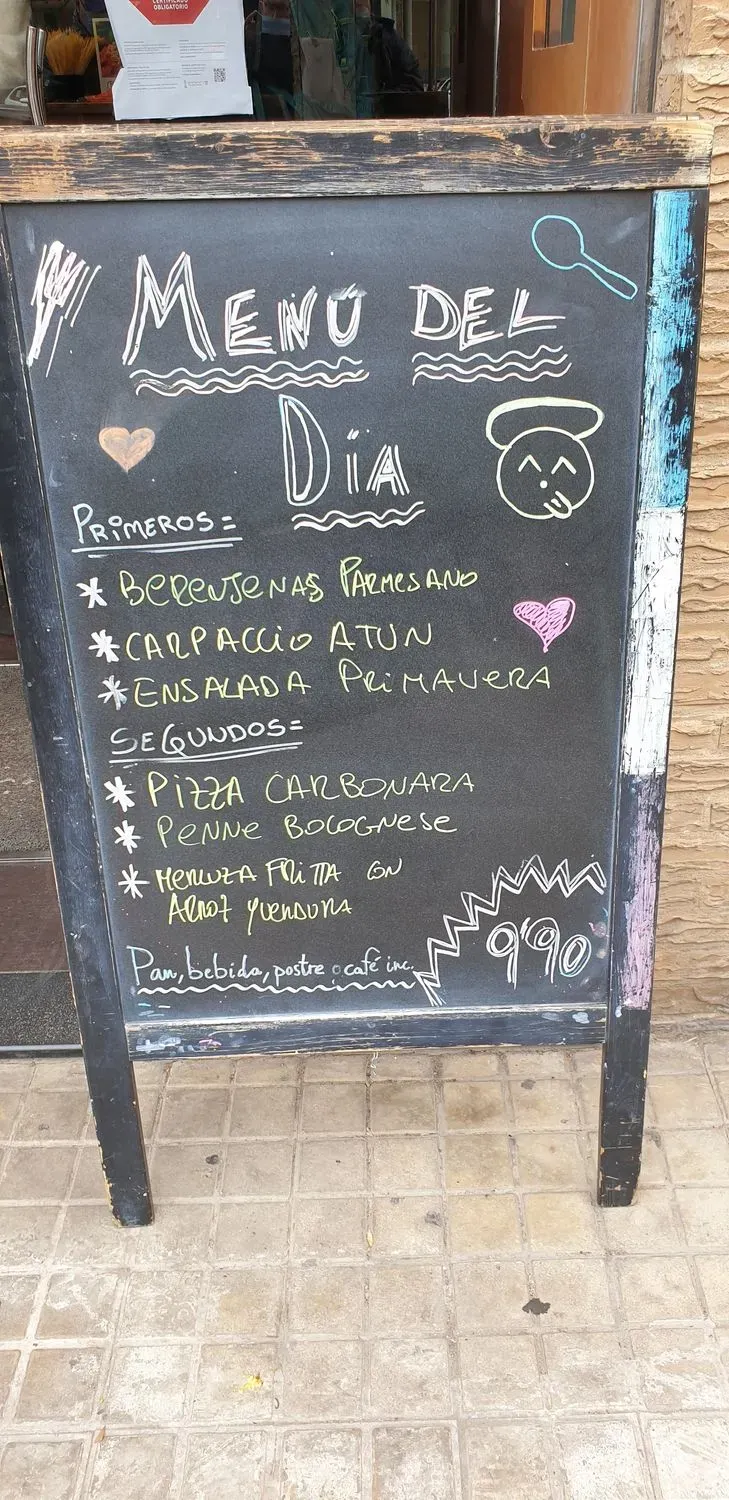 CERTIFICADO
OBLIGATORIO
MENÚ DEL
DÍA
PRIMEROS=
* BERENJENAS PARMESANO
* CARPACCIO ATUN
* ENSALADA PRIMAVERA
SEGUNDOS=
* PIZZA CARBONARA
* PENNE BOLOGNESE
* MERLUZA FRITTA CON
ARROZ Y VERDURA
Pan, bebida, postre o café inc.
9'90